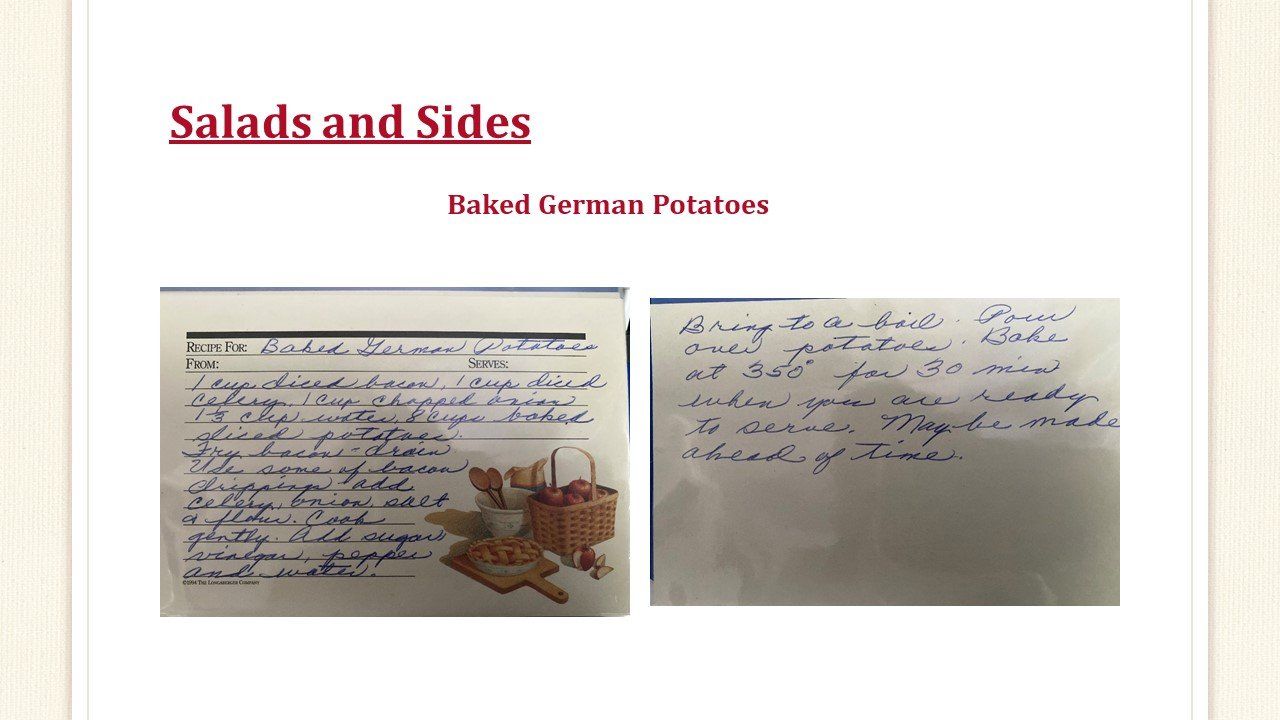 Salads and Sides
Baked German Potatoes
RECIPE FOR: Baked German Potatoes
FROM: SERVES:
1 cup diced bacon, 1 cup diced
celery, 1 cup chopped onion
cup water, 8 cups baked
sliced potatoes.
Fry bacon - drain
Use some of bacon
drippings add
celery, onion, salt
& flour. Cook
gently. Add sugar,
vinegar, pepper
and water.
©1994 THE LONGABERGER COMPANY
Bring to a boil. Pour
over potatoes. Bake
at 350° for 30 min
when you are ready
to serve. May be made
ahead of time.